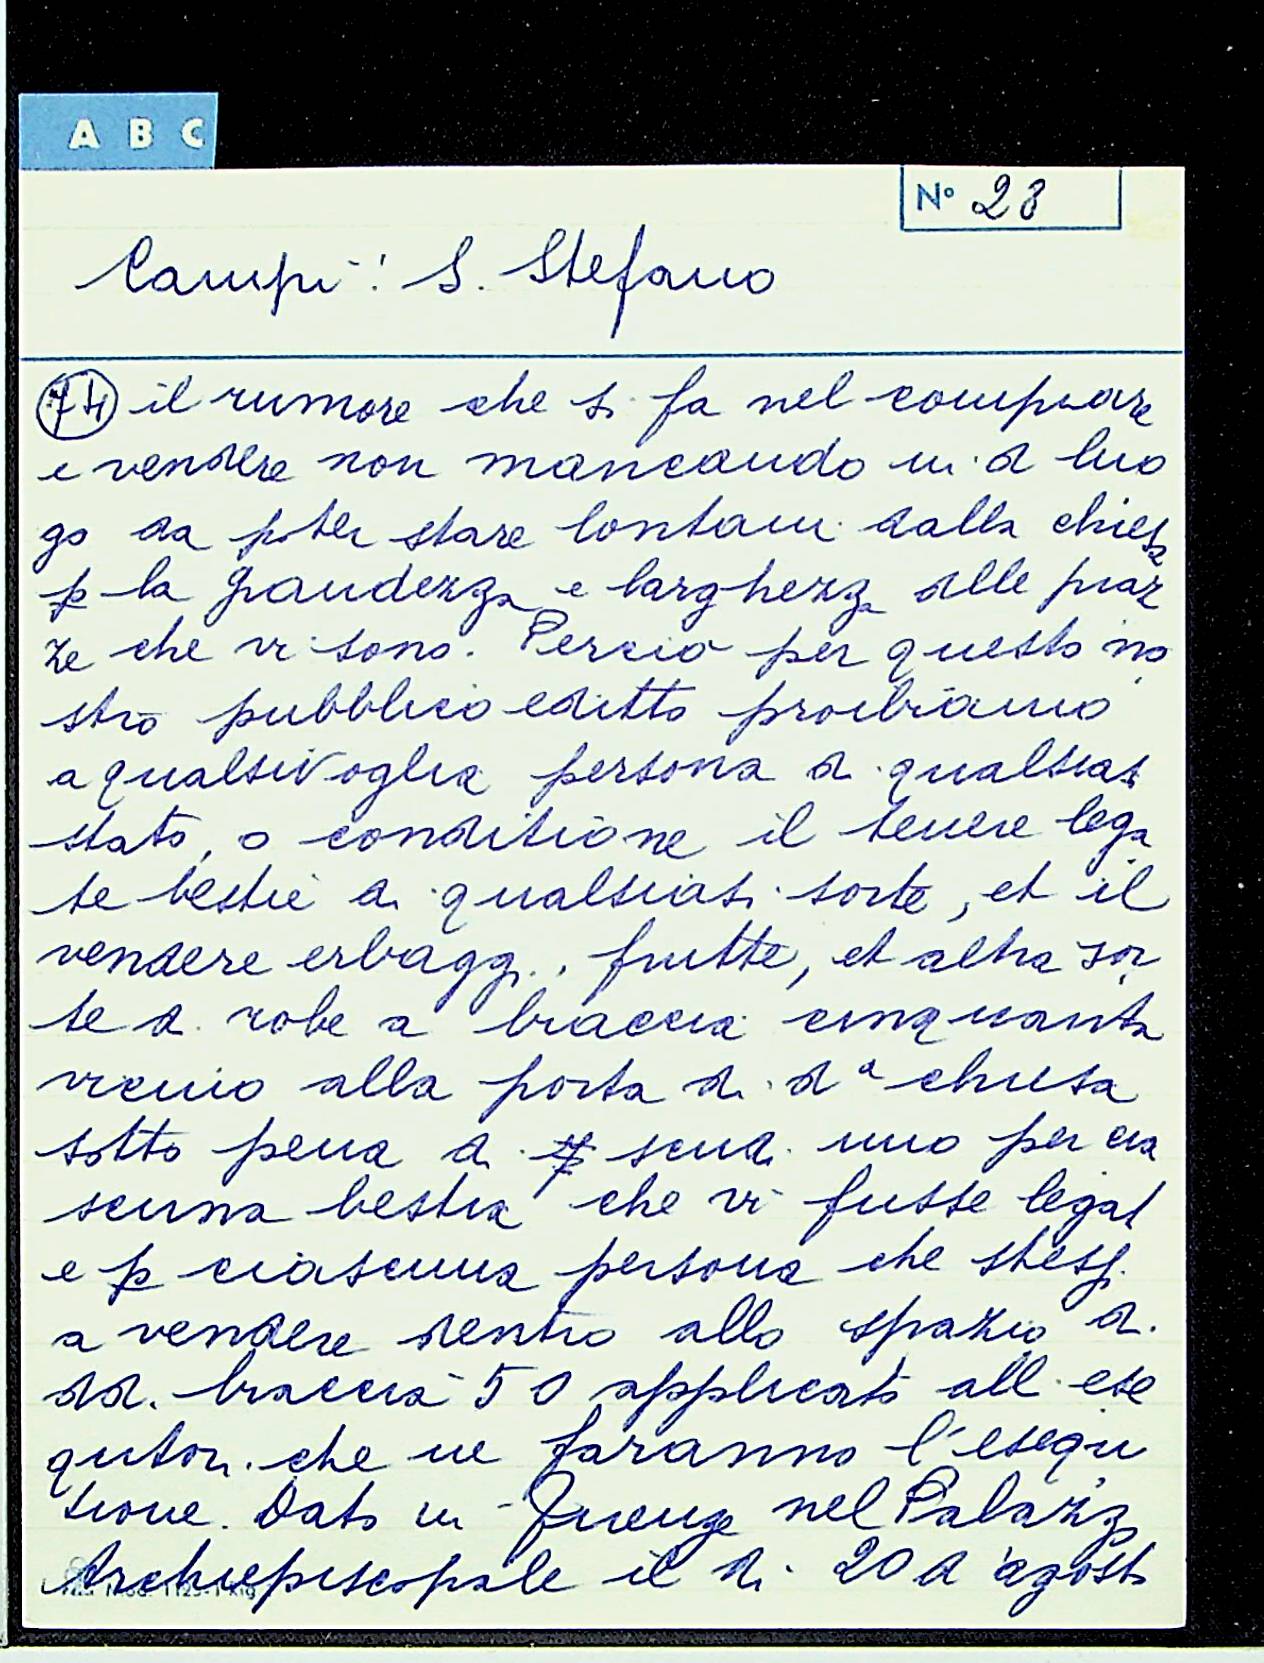 A B C
Nº 28
Campi: S. Stefano
74 il rumore che si fa nel comprare
e vendere non mancando in d luo
go da poter stare lontani dalla chiesa
p la grandezza e larghezza delle piaz
ze che vi sono. Perciò per questo no
stro pubblico editto proibiamo
a qualsivoglia persona di qualsiasi
stato, o conditione il tenere lega
te bestie di qualsiasi sorte, et il
vendere erbaggi, frutte, et altra sor
te di robe a braccia cinquanta
vicino alla porta di dª chiesa
sotto pena di scudi uno per cia
scuna bestia che vi fusse legat
e p ciascuna persona che stessi
a vendere dentro allo spazio di
dd. braccia 50 applicati all ese
qutori che ne faranno l'esequ
tione. Dato in Firenze nel Palazzo
Archiepiscopale il di 20 d'agosto